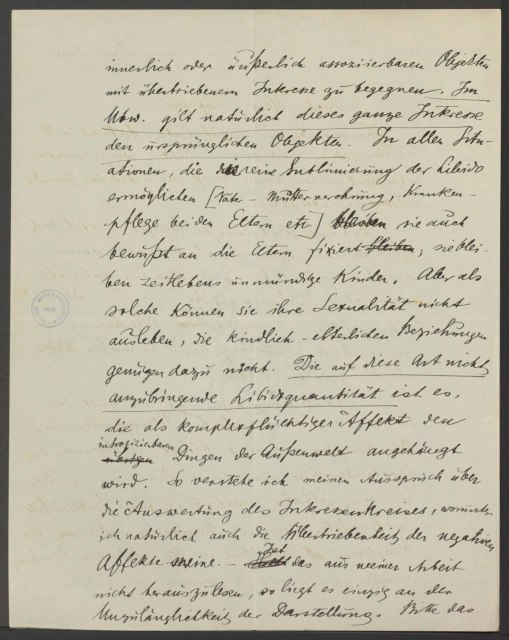 innerlich oder äußerlich assoziierbaren Objekten
mit übertriebenem Interesse zu begegnen. Im
Ubw. gilt natürlich dieses ganze Interesse
den ursprünglichen Objekten. In allen Situ-
ationen, die die reine Sublimierung der Libido
ermöglichen [Vater-Mutterverehrung, Kranken-
pflege bei den Eltern etc] bleiben sie auch
bewußt an die Eltern fixiert bleiben; sie blei-
ben zeitlebens unmündige Kinder. Aber als
solche können sie ihre Sexualität nicht
ausleben, die kindlich-elterlichen Beziehungen
genügen dazu nicht. Die auf diese Art nicht
anzubringende Libidoquantität ist es,
die als komplexflüchtiger Affekt den
introjizierbaren
übrigen Dingen der Außenwelt angehängt
wird. So verstehe ich meinen Ausspruch über
die Ausweitung des Interessenkreises, worunter
ich natürlich auch die Übertriebenheit der negativen
Affekte meine. – Ist das aus meiner Arbeit
nicht herauszulesen, so liegt es einzig an der
Unzulänglichkeit der Darstellung. Bitte das